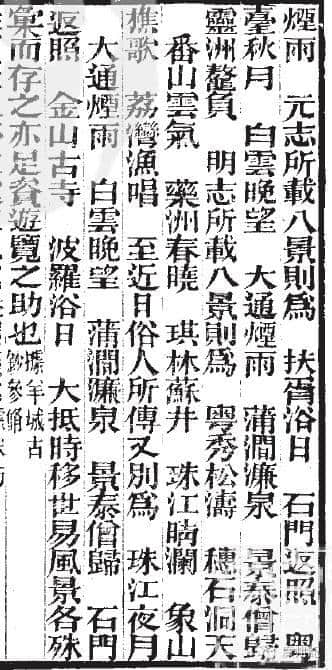 煙雨　元志所載八景則為　扶胥浴日　石門返照　粵
臺秋月　白雲晚望　大通煙雨　蒲澗濂泉　景泰僧歸
靈洲鰲負　明志所載八景則為　粵秀松濤　穗石洞天
番山雲氣　藥洲春曉　琪林蘇井　珠江晴瀾　象山
樵歌　荔灣漁唱　至近日俗人所傳又別為　珠江夜月
大通煙雨　白雲晚望　蒲澗濂泉　景泰僧歸　石門
返照　金山古寺　波羅浴日　大抵時移世易風景各殊
彙而存之亦足資遊覽之助也據羊城古
鈔參脩